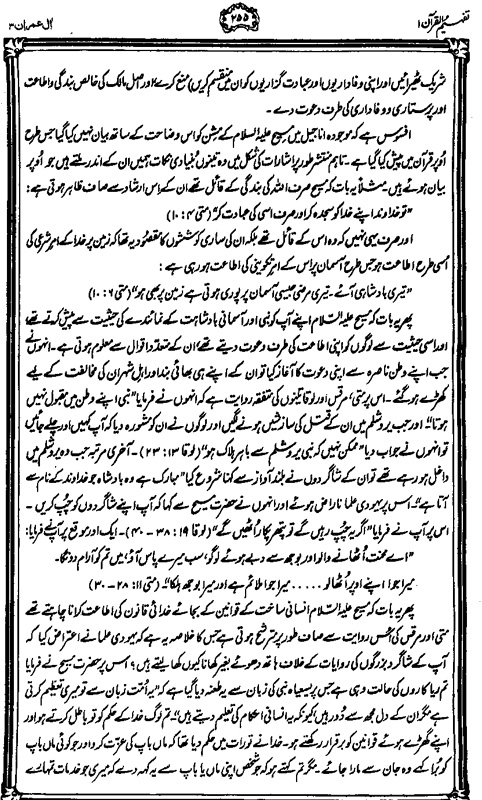 تفہیم القرآن ۱
۲۵۵
اٰل عمران ۳
شریک ٹھیرائیں اور اپنی وفاداریوں اور عبادت گزاریوں کو ان میں منقسم کریں) منع کرے، اور اصل مالک کی خالص بندگی و اطاعت
اور پرستاری و وفاداری کی طرف دعوت دے۔
افسوس ہے کہ موجودہ اناجیل میں مسیح علیہ السلام کے مشن کو اس وضاحت کے ساتھ بیان نہیں کیا گیا جس طرح
اُوپر قرآن میں پیش کیا گیا ہے۔ تاہم منتشر طور پر اشارات کی شکل میں وہ تینوں بُنیادی نکات ہمیں ان کے اندر ملتے ہیں جو اُوپر
بیان ہوئے ہیں۔ مثلاً یہ بات کہ مسیح صرف اللہ کی بندگی کے قائل تھے ان کے اس ارشاد سے صاف ظاہر ہوتی ہے:
”تو خداوند اپنے خدا کو سجدہ کر اور صرف اسی کی عبادت کر“ (متی ۴ : ۱۰)
اور صرف یہی نہیں کہ وہ اس کے قائل تھے بلکہ ان کی ساری کوششوں کا مقصُود یہ تھا کہ زمین پر خدا کے امرِ شرعی کی
اسی طرح اطاعت ہو جس طرح آسمان پر اس کے امرِ تکوینی کی اطاعت ہو رہی ہے :
”تیری بادشاہی آئے۔ تیری مرضی جیسی آسمان پر پوری ہوتی ہے زمین پر بھی ہو“ (متی ۶ : ۱۰)
پھر یہ بات کہ مسیح علیہ السلام اپنے آپ کو نبی اور آسمانی بادشاہت کے نمائندے کی حیثیت سے پیش کرتے تھے،
اور اسی حیثیت سے لوگوں کو اپنی اطاعت کی طرف دعوت دیتے تھے، ان کے متعدد اقوال سے معلوم ہوتی ہے۔ انہوں نے
جب اپنے وطن ناصرہ سے اپنی دعوت کا آغاز کیا تو ان کے اپنے ہی بھائی بند اور اہلِ شہر ان کی مخالفت کے لیے
کھڑے ہو گئے۔ اس پر متی، مرقس اور لوقا تینوں کی متفقہ روایت ہے کہ انہوں نے فرمایا ”نبی اپنے وطن میں مقبول نہیں
ہوتا“۔ اور جب یروشلم میں ان کے قتل کی سازشیں ہونے لگیں اور لوگوں نے ان کو مشورہ دیا کہ آپ کہیں اور چلے جائیں
تو انہوں نے جواب دیا ”ممکن نہیں کہ نبی یروشلم سے باہر ہلاک ہو“ (لوقا ۱۳ : ۲۳)۔ آخری مرتبہ جب وہ یروشلم میں
داخل ہو رہے تھے تو ان کے شاگردوں نے بلند آواز سے کہنا شروع کیا ”مبارک ہے وہ بادشاہ جو خداوند کے نام سے
آتا ہے“۔ اس پر یہودی علما ناراض ہوئے اور انہوں نے حضرت مسیح سے کہا کہ آپ اپنے شاگردوں کو چپ کریں۔
اس پر آپ نے فرمایا ”اگر یہ چپ رہیں گے تو پتھر پکار اُٹھیں گے“ (لوقا ۱۹ : ۳۸ - ۴۰)۔ ایک اور موقع پر آپ نے فرمایا:
”اے محنت اُٹھانے والو اور بوجھ سے دبے ہوئے لوگو، سب میرے پاس آؤ، میں تم کو آرام دونگا۔
میرا جوا اپنے اوپر اُٹھا لو ..... میرا جوا ملائم ہے اور میرا بوجھ ہلکا“۔ (متی ۱۱: ۲۸ - ۳۰)
پھر یہ بات کہ مسیح علیہ السلام انسانی ساخت کے قوانین کے بجائے خدائی قانون کی اطاعت کرانا چاہتے تھے
متی اور مرقس کی اس روایت سے صاف طور پر مترشح ہوتی ہے جس کا خلاصہ یہ ہے کہ یہودی علما نے اعتراض کیا کہ
آپ کے شاگرد بزرگوں کی روایات کے خلاف ہاتھ دھوئے بغیر کھانا کیوں کھا لیتے ہیں؟ اس پر حضرت مسیح نے فرمایا
تم ریاکاروں کی حالت وہی ہے جس پر یسعیاہ نبی کی زبان سے یہ طعنہ دیا گیا ہے کہ ”یہ اُمت زبان سے تو میری تعظیم کرتی
ہے مگر ان کے دل مجھ سے دُور ہیں، کیونکہ یہ انسانی احکام کی تعلیم دیتے ہیں“۔ تم لوگ خدا کے حکم کو تو باطل کرتے ہو اور
اپنے گھڑے ہوئے قوانین کو برقرار رکھتے ہو۔ خدا نے تورات میں حکم دیا تھا کہ ماں باپ کی عزّت کرو اور جو کوئی ماں باپ
کو بُرا کہے وہ جان سے مارا جائے۔ مگر تم کہتے ہو کہ جو شخص اپنی ماں یا باپ سے یہ کہہ دے کہ میری جو خدمات تمہارے